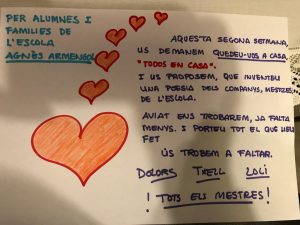 PER ALUMNES I
FAMILIES DE
L'ESCOLA
AGNÈS ARMENGOL
AQUESTA SEGONA SETMANA,
US DEMANEM QUEDEU-VOS A CASA,
"TODOS EN CASA".
I US PROPOSEM, QUE INVENTEU
UNA POESIA DELS COMPANYS, MESTRES,
DE L'ESCOLA.
AVIAT ENS TROBAREM, JA FALTA
MENYS. I PORTEU TOT EL QUE HEU
FET
US TROBEM A FALTAR.
DOLORS TXELL LOLI
! TOTS ELS MESTRES!